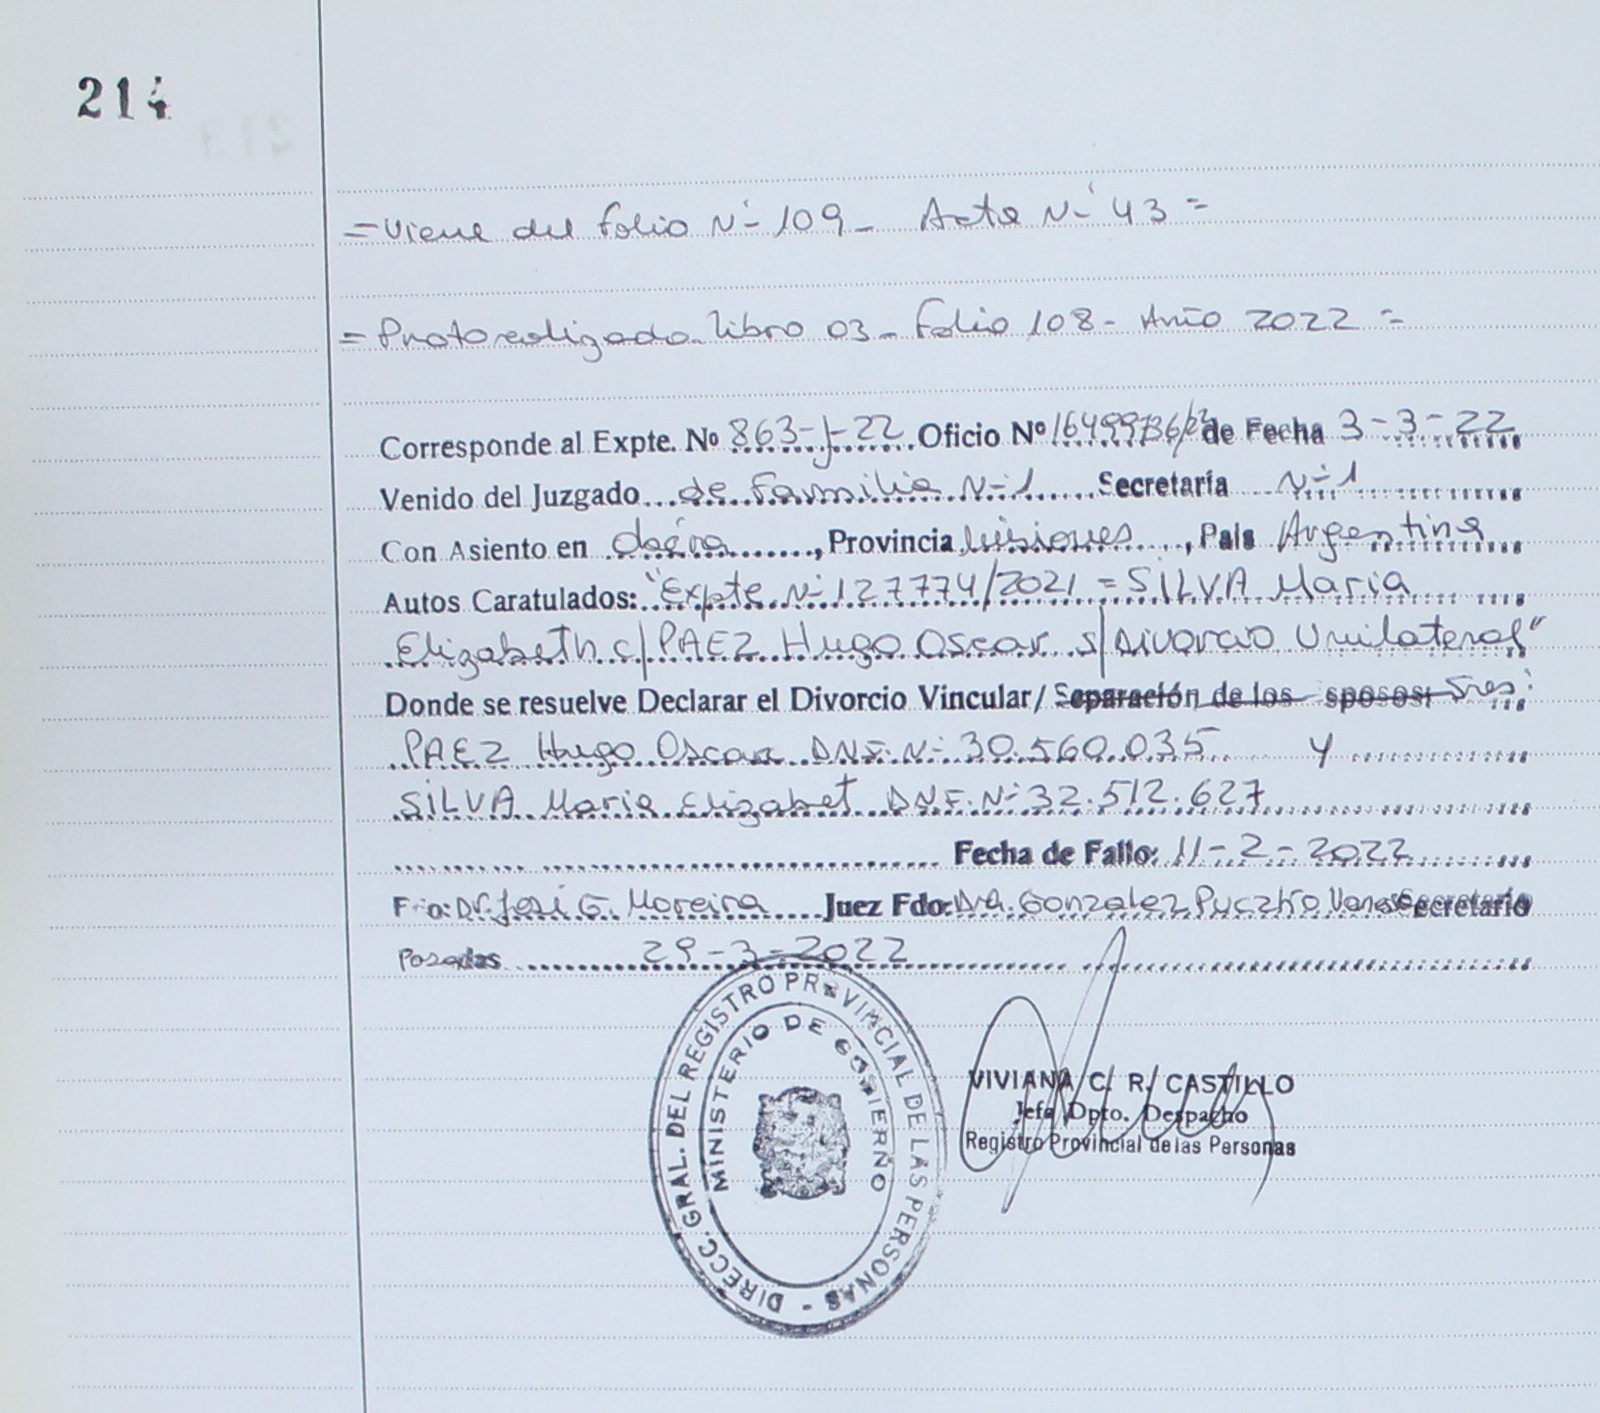 214
= Viene del folio Nº 109 - Acta Nº 43 =
= Protocolizado Libro 03 - Folio 108 - Año 2022 =
Corresponde al Expte. Nº 863-J-22 Oficio Nº de Fecha 3-3-22
Venido del Juzgado de Familia Nº 1 Secretaría Nº 1
Con Asiento en Oberá, Provincia Misiones, País Argentina
Autos Caratulados: "Expte Nº 127774/2021 = SILVA Maria
Elizabeth c/ PAEZ Hugo Oscar s/ Divorcio Unilateral"
Donde se resuelve Declarar el Divorcio Vincular/ Separación de los sposos; Sres:
PAEZ Hugo Oscar D.N.I. Nº 30.560.035 y
SILVA Maria Elizabet D.N.I. Nº 32.512.627
Fecha de Fallo: 11-2-2022
F o: Dr. José G. Moreira Juez Fdo: Dra. Gonzalez Secretario
Posadas 29-3-2022
DIRECC. GRAL. DEL REGISTRO PROVINCIAL DE LAS PERSONAS -
MINISTERIO DE GOBIERNO
VIVIANA C. R. CASTILLO
Jefa Dpto. Despacho
Registro Provincial de las Personas